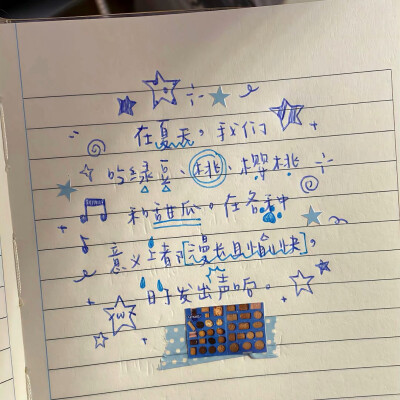 在夏天，我们
吃绿豆、桃、樱桃
和甜瓜。在各种
意义上都漫长且愉快，
日子发出声响。